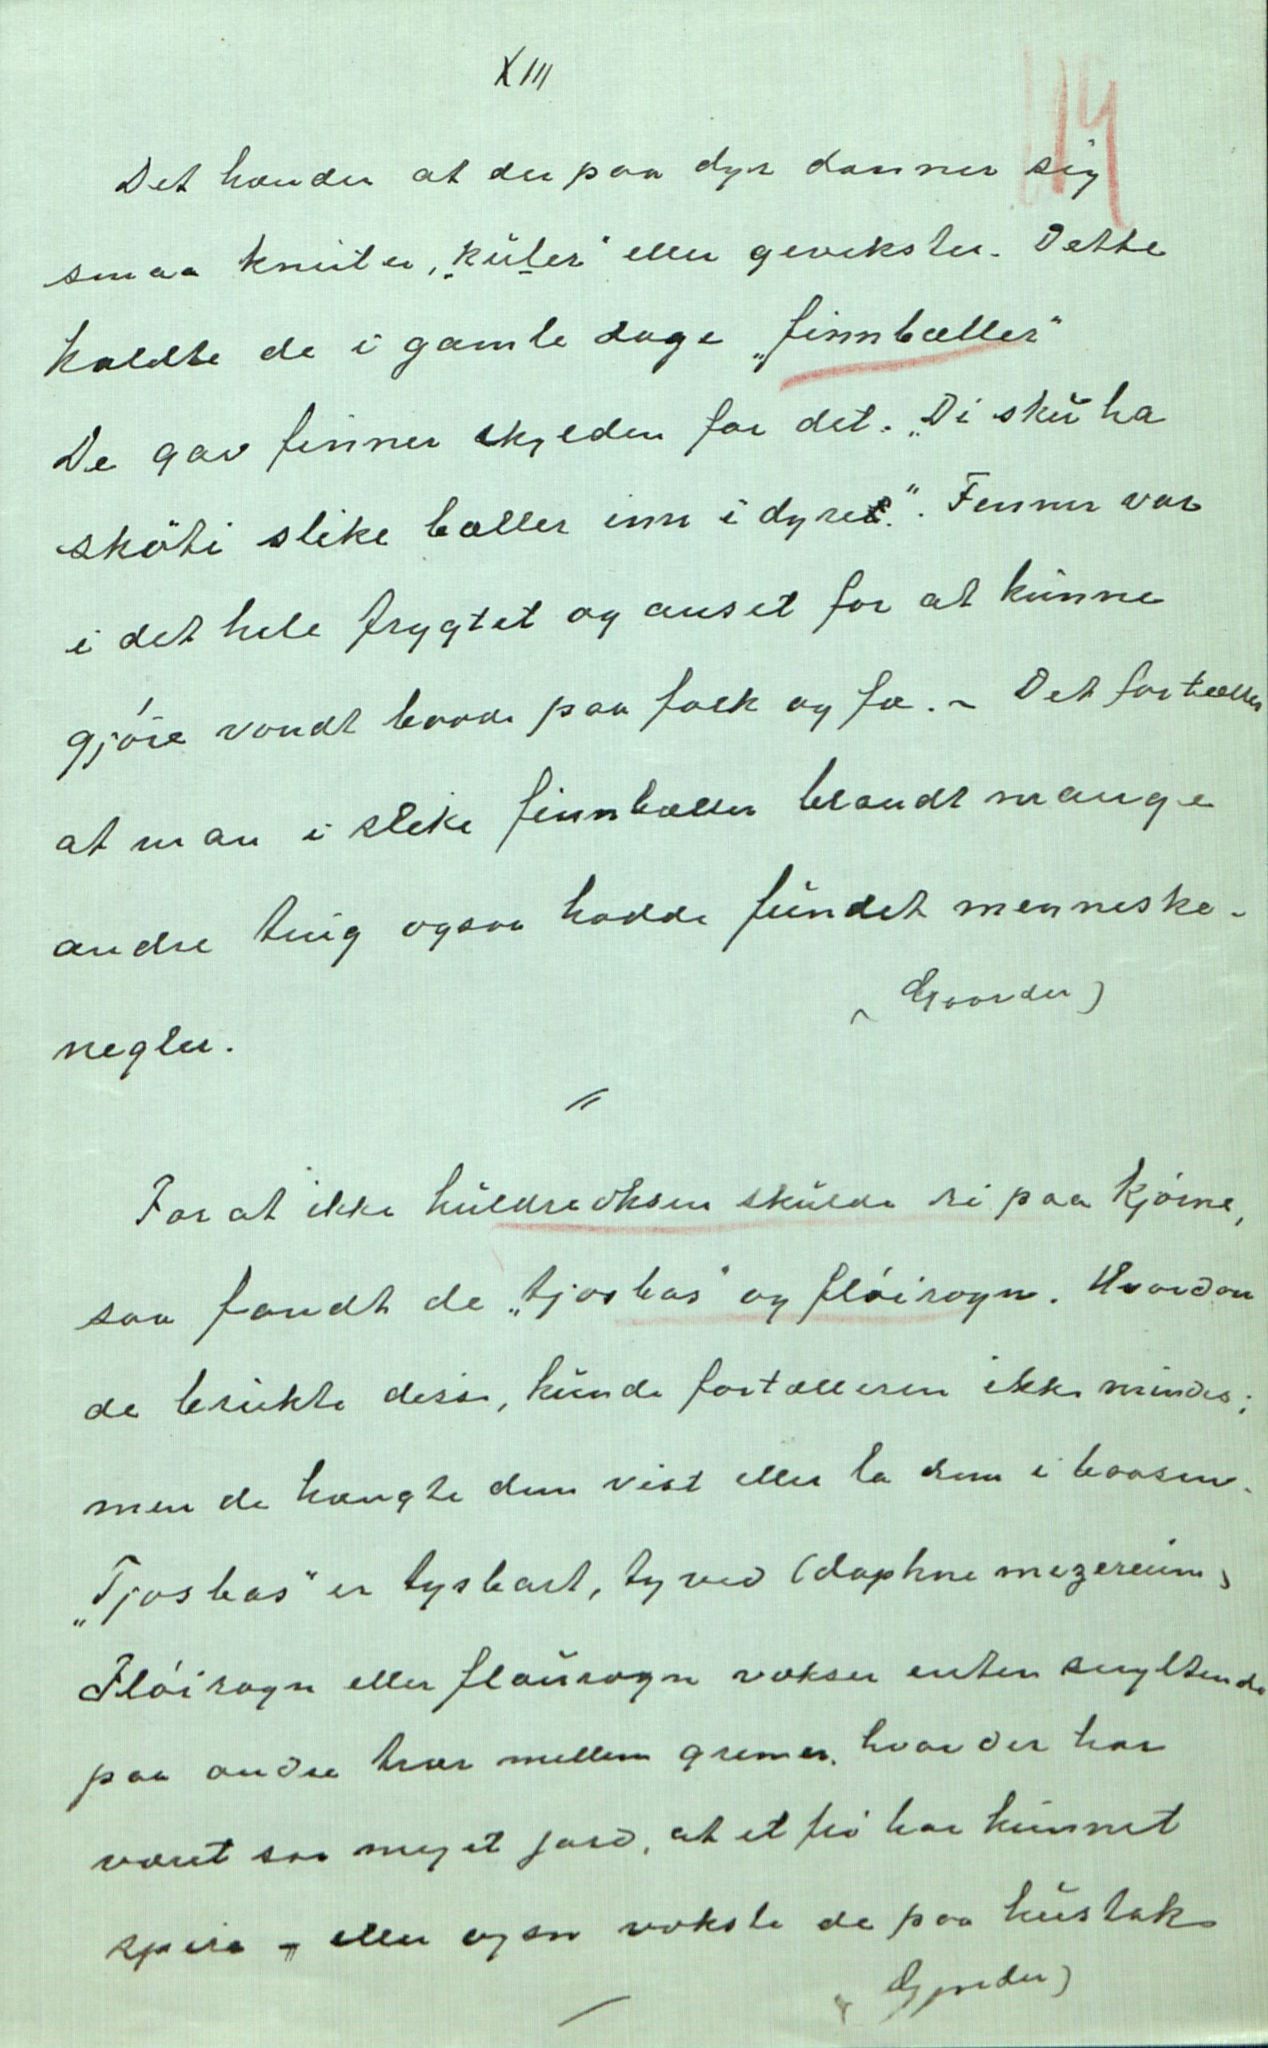 XIII
119
Det hænder at der paa dyr danner sig
smaa knuter, „kuler" eller gevekster. Dette
kaldte de i gamle dage „finnbæller"
De gav finner skylden for det. „Di sku ha
sköti slike bæller inn i dyret." Finner var
i det hele frygtet og anset for at kunne
gjöre vondt baade paa folk og fæ. - Det fortælles
at man i slike finnbæller blandt mange
andre ting ogsaa hadde fundet menneske-
negler.
(Gaarder)
For at ikke huldreoksen skulde ri paa kjörne,
saa fandt de „tjosbas" og flöirogn. Hvordan
de brukte disse, kunde fortælleren ikke mindes;
men de hængte dem vist eller la dem i baasen.
„Tjosbas" er tysbast, tyved (daphne mezereum)
Flöirogn eller flaurogn vokser enten snyltende
paa andre trær mellem grener, hvor der har
været saa meget jord, at et frö har kunnet
spire - eller ogsaa vokste de paa hustak